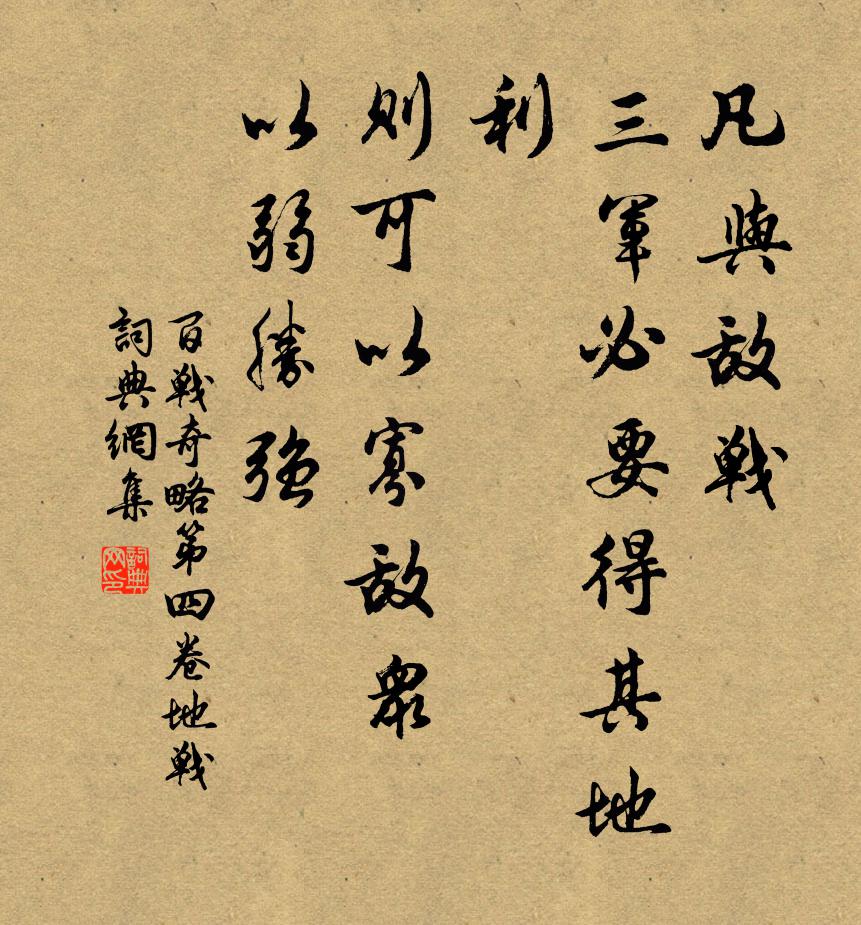 凡與敵戰
三軍必要得其地
利
則可以寡敵眾
以弱勝強
百戰奇略第四卷地戰
詞典網集
詞典网印